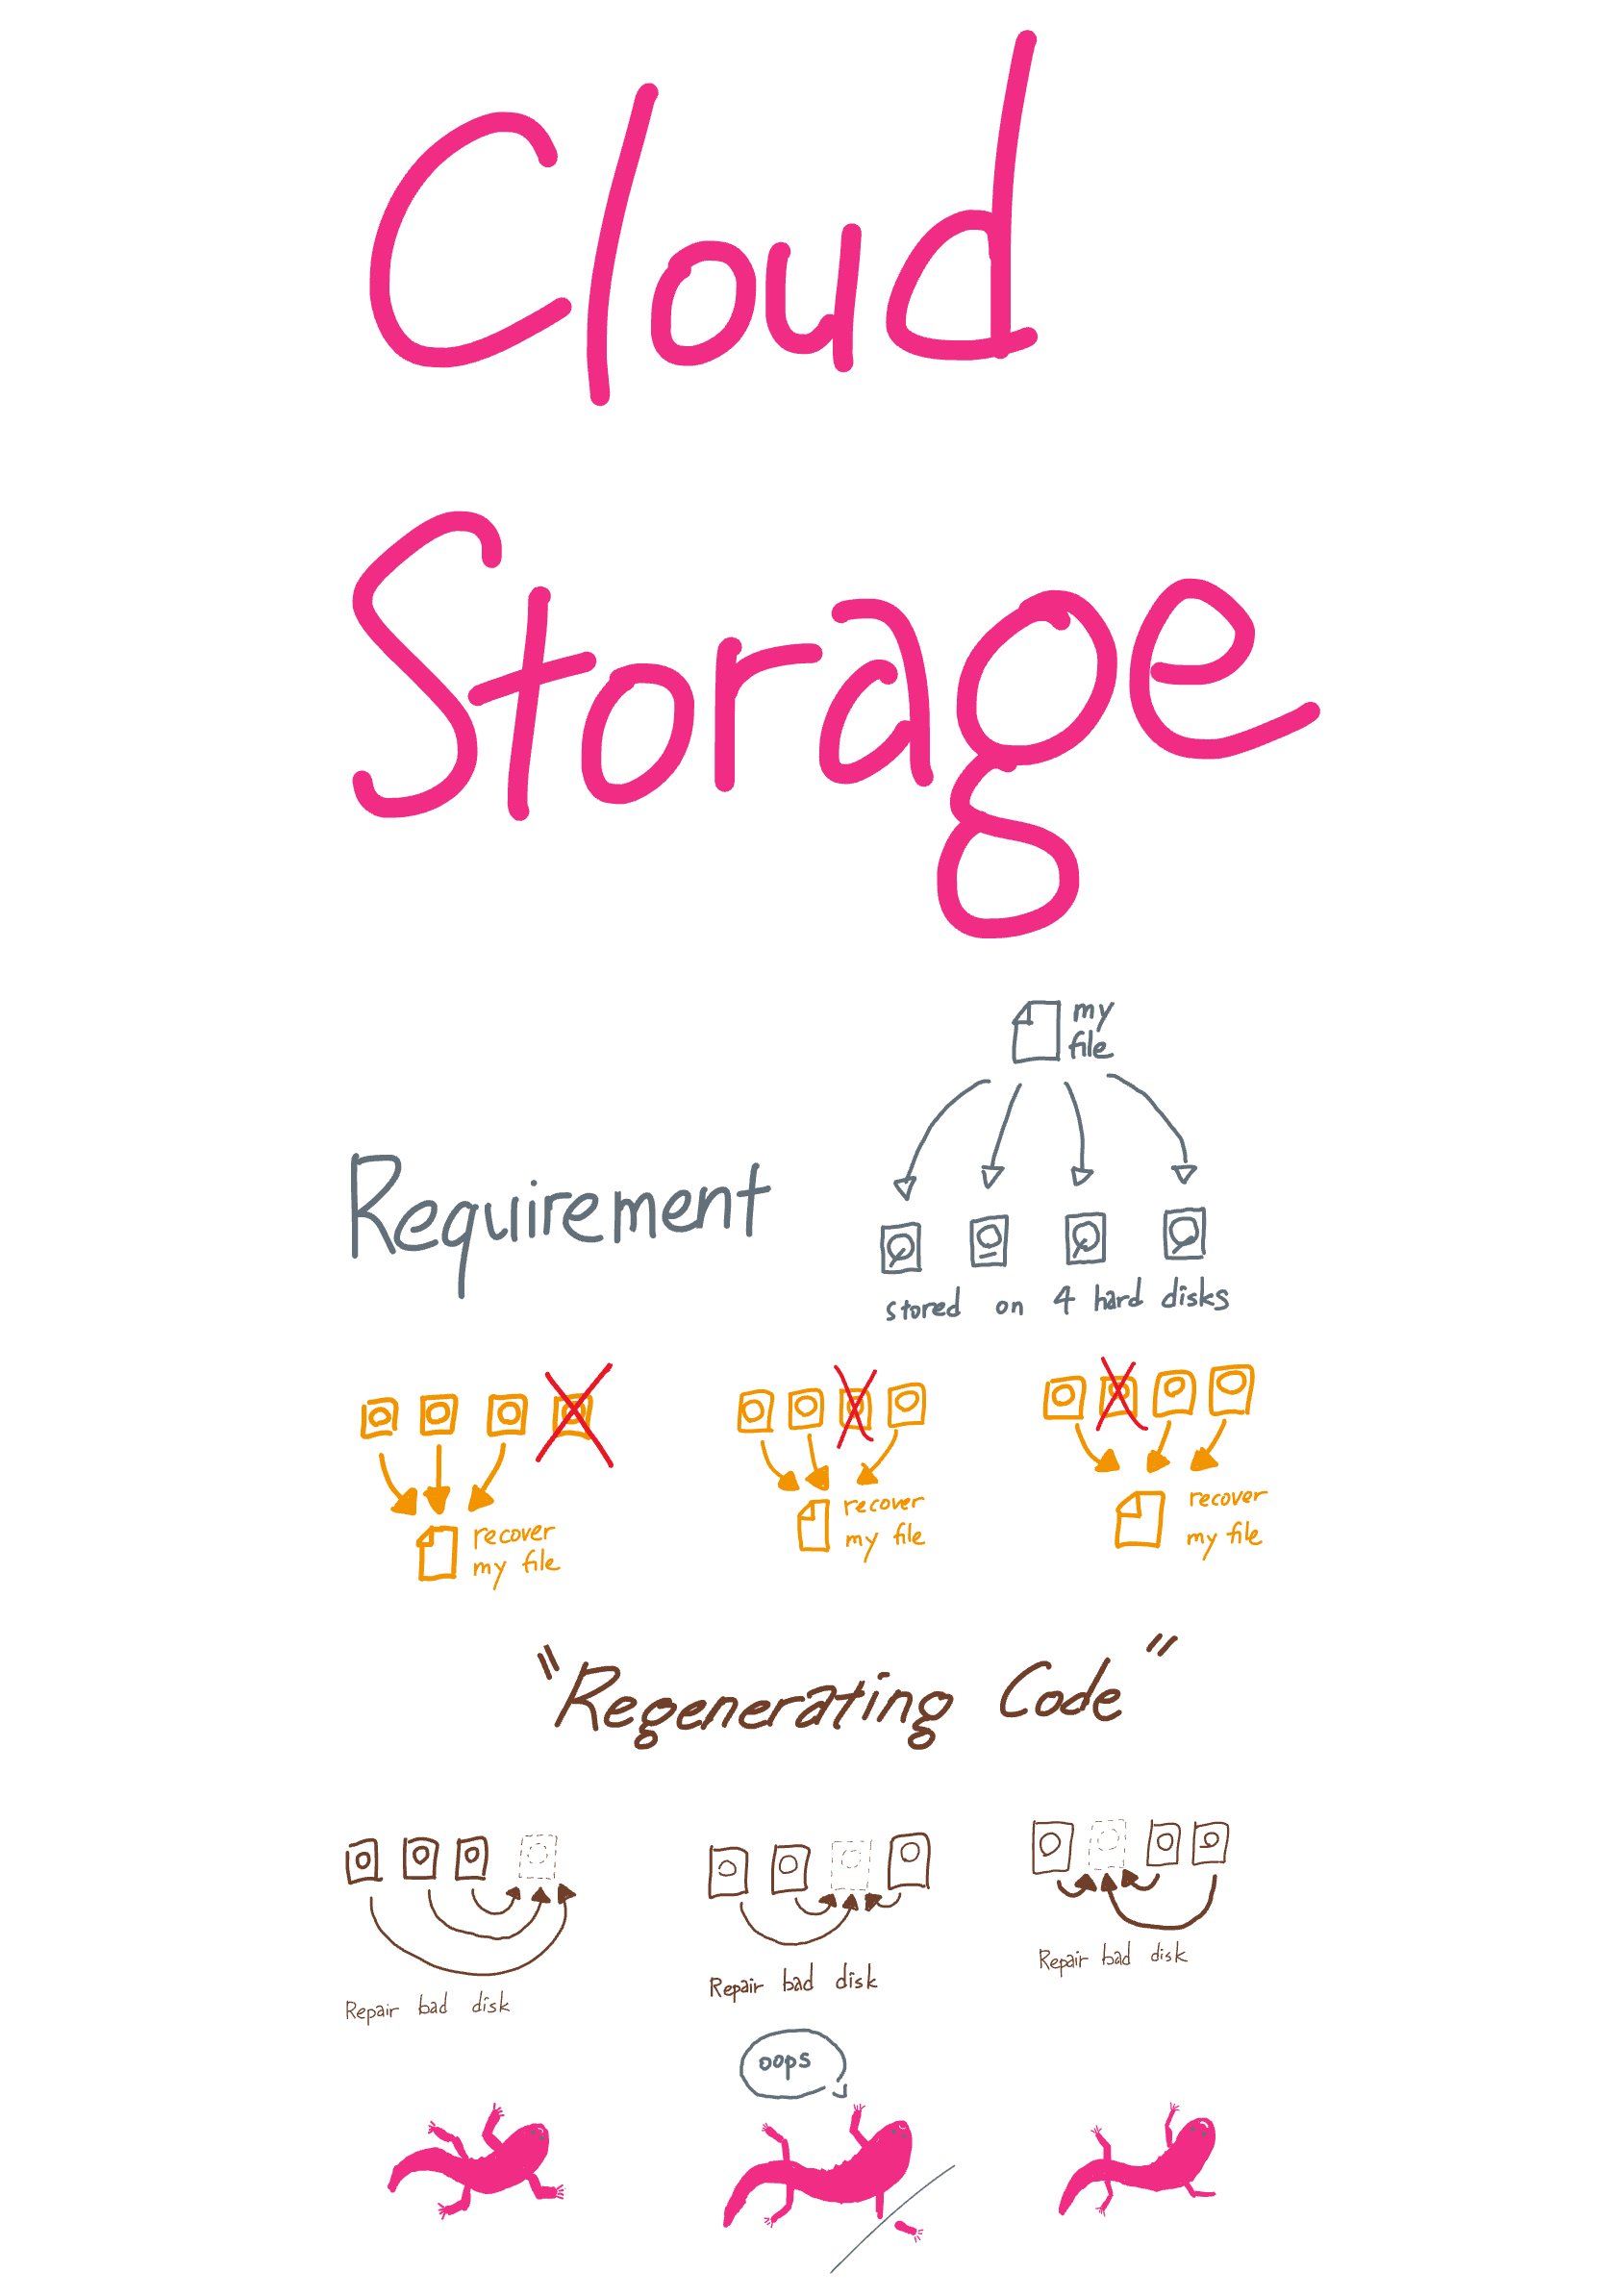 Cloud
Storage
my
file
Requirement
stored on 4 hard disks
recover
my file
recover
my file
recover
my file
"Regenerating Code"
Repair bad disk
Repair bad disk
Repair bad disk
oops